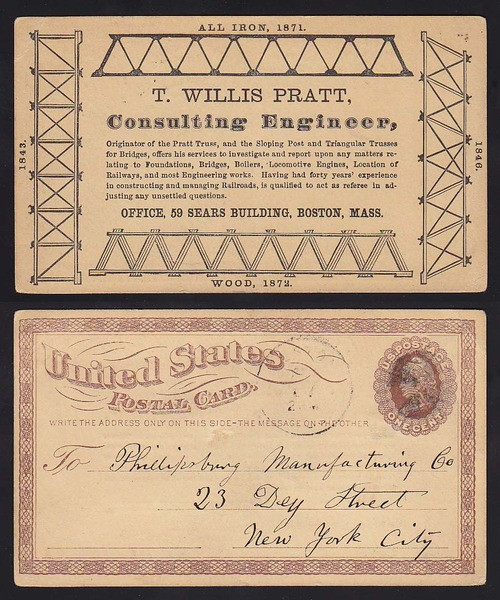 ALL IRON, 1871.
1843.
1846.
T. WILLIS PRATT,
Consulting Engineer,
Originator of the Pratt Truss, and the Sloping Post and Triangular Trusses
for Bridges, offers his services to investigate and report upon any matters re-
lating to Foundations, Bridges, Boilers, Locomotive Engines, Location of
Railways, and most Engineering works. Having had forty years' experience
in constructing and managing Railroads, is qualified to act as referee in ad-
justing any unsettled questions.
OFFICE, 59 SEARS BUILDING, BOSTON, MASS.
WOOD, 1872.
United States
POSTAL CARD.
U.S. POSTAGE
ONE CENT
WRITE THE ADDRESS ONLY ON THIS SIDE-THE MESSAGE ON THE OTHER
To Phillipsburg Manufacturing Co
23 Dey Street
New York City